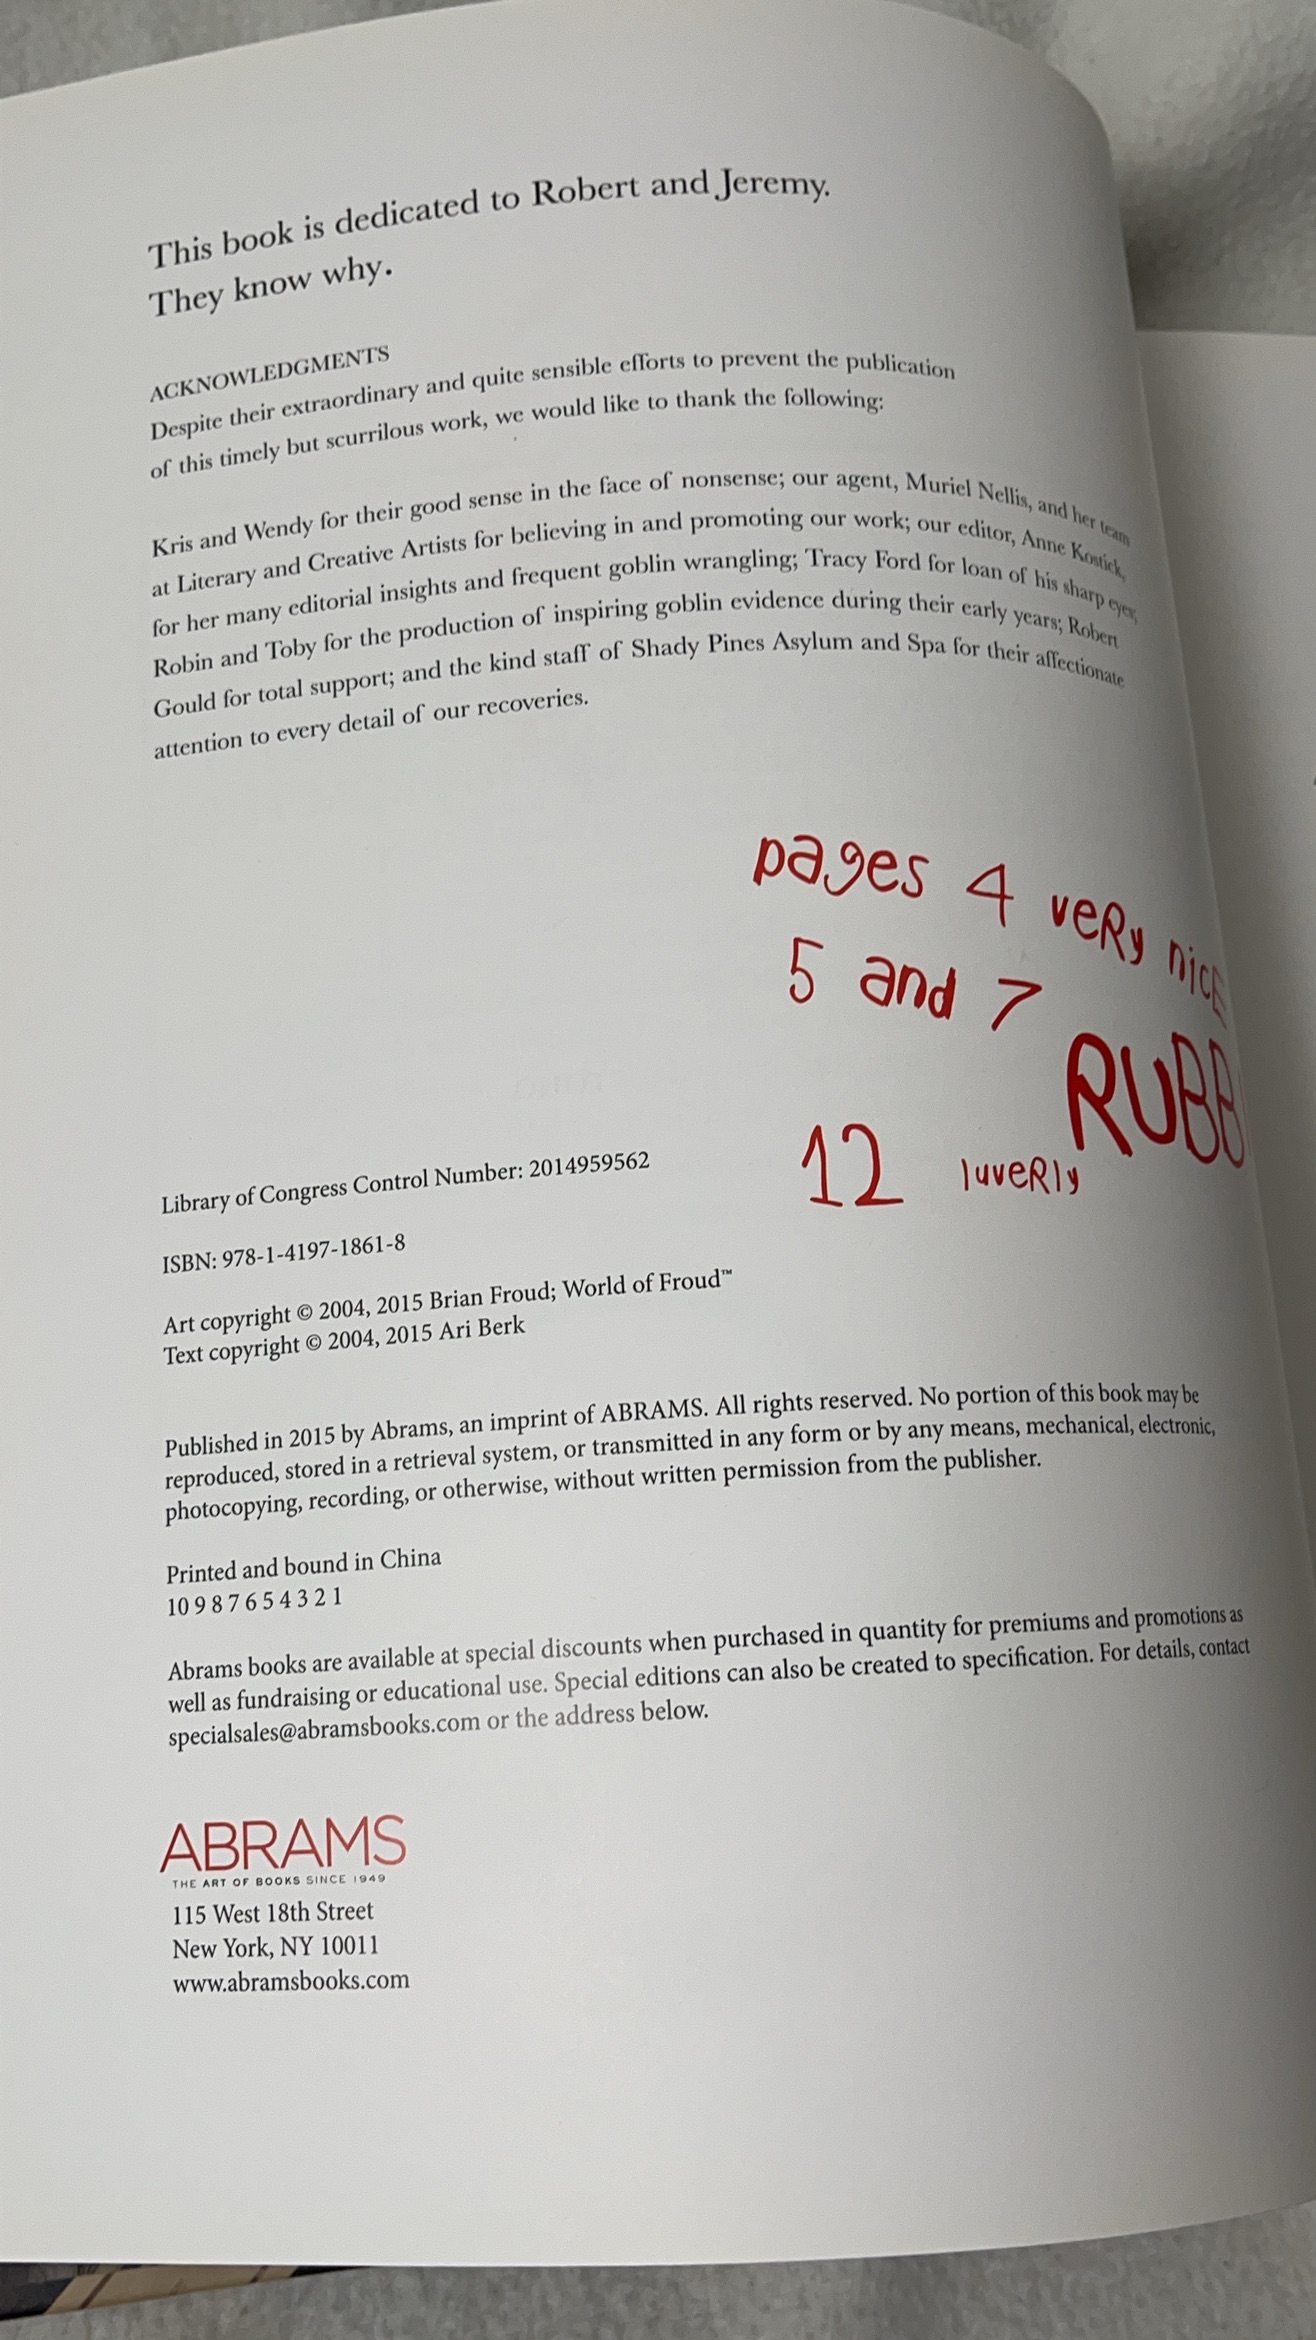 This book is dedicated to Robert and Jeremy.
They know why.
ACKNOWLEDGMENTS
Despite their extraordinary and quite sensible efforts to prevent the publication
of this timely but scurrilous work, we would like to thank the following:
Kris and Wendy for their good sense in the face of nonsense; our agent, Muriel Nellis, and her team
at Literary and Creative Artists for believing in and promoting our work; our editor, Anne Kostick,
for her many editorial insights and frequent goblin wrangling; Tracy Ford for loan of his sharp eyes;
Robin and Toby for the production of inspiring goblin evidence during their early years; Robert
Gould for total support; and the kind staff of Shady Pines Asylum and Spa for their affectionate
attention to every detail of our recoveries.
pages 4 veRy nicE
5 and 7
RUBB
12 luveRly
Library of Congress Control Number: 2014959562
ISBN: 978-1-4197-1861-8
Art copyright © 2004, 2015 Brian Froud; World of Froud™
Text copyright © 2004, 2015 Ari Berk
Published in 2015 by Abrams, an imprint of ABRAMS. All rights reserved. No portion of this book may be
reproduced, stored in a retrieval system, or transmitted in any form or by any means, mechanical, electronic,
photocopying, recording, or otherwise, without written permission from the publisher.
Printed and bound in China
10 9 8 7 6 5 4 3 2 1
Abrams books are available at special discounts when purchased in quantity for premiums and promotions as
well as fundraising or educational use. Special editions can also be created to specification. For details, contact
specialsales@abramsbooks.com or the address below.
ABRAMS
THE ART OF BOOKS SINCE 1949
115 West 18th Street
New York, NY 10011
www.abramsbooks.com